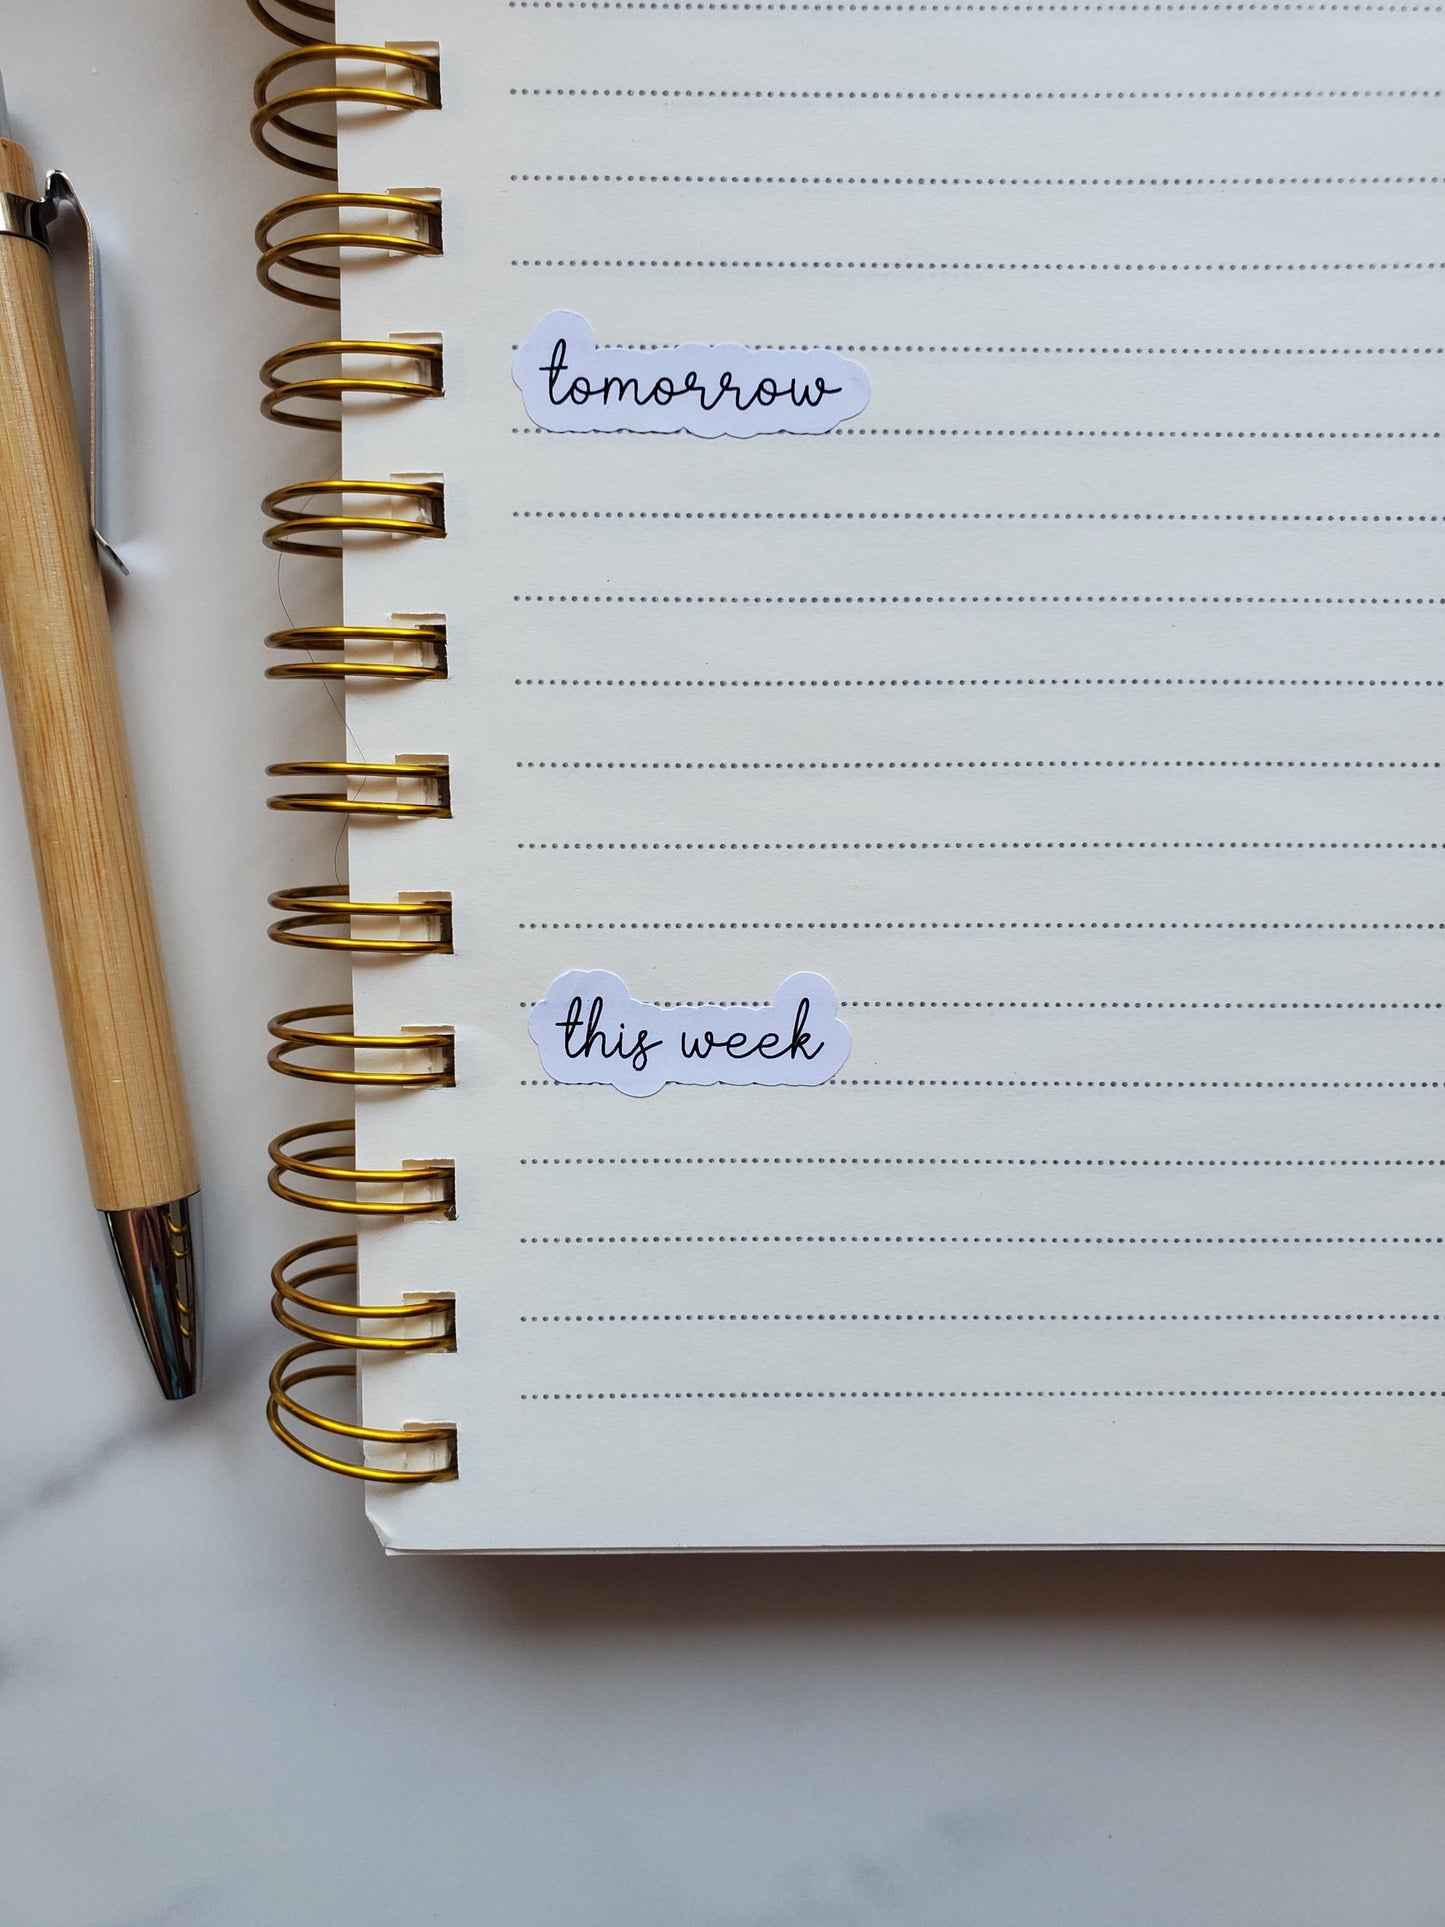 tomorrow
this week